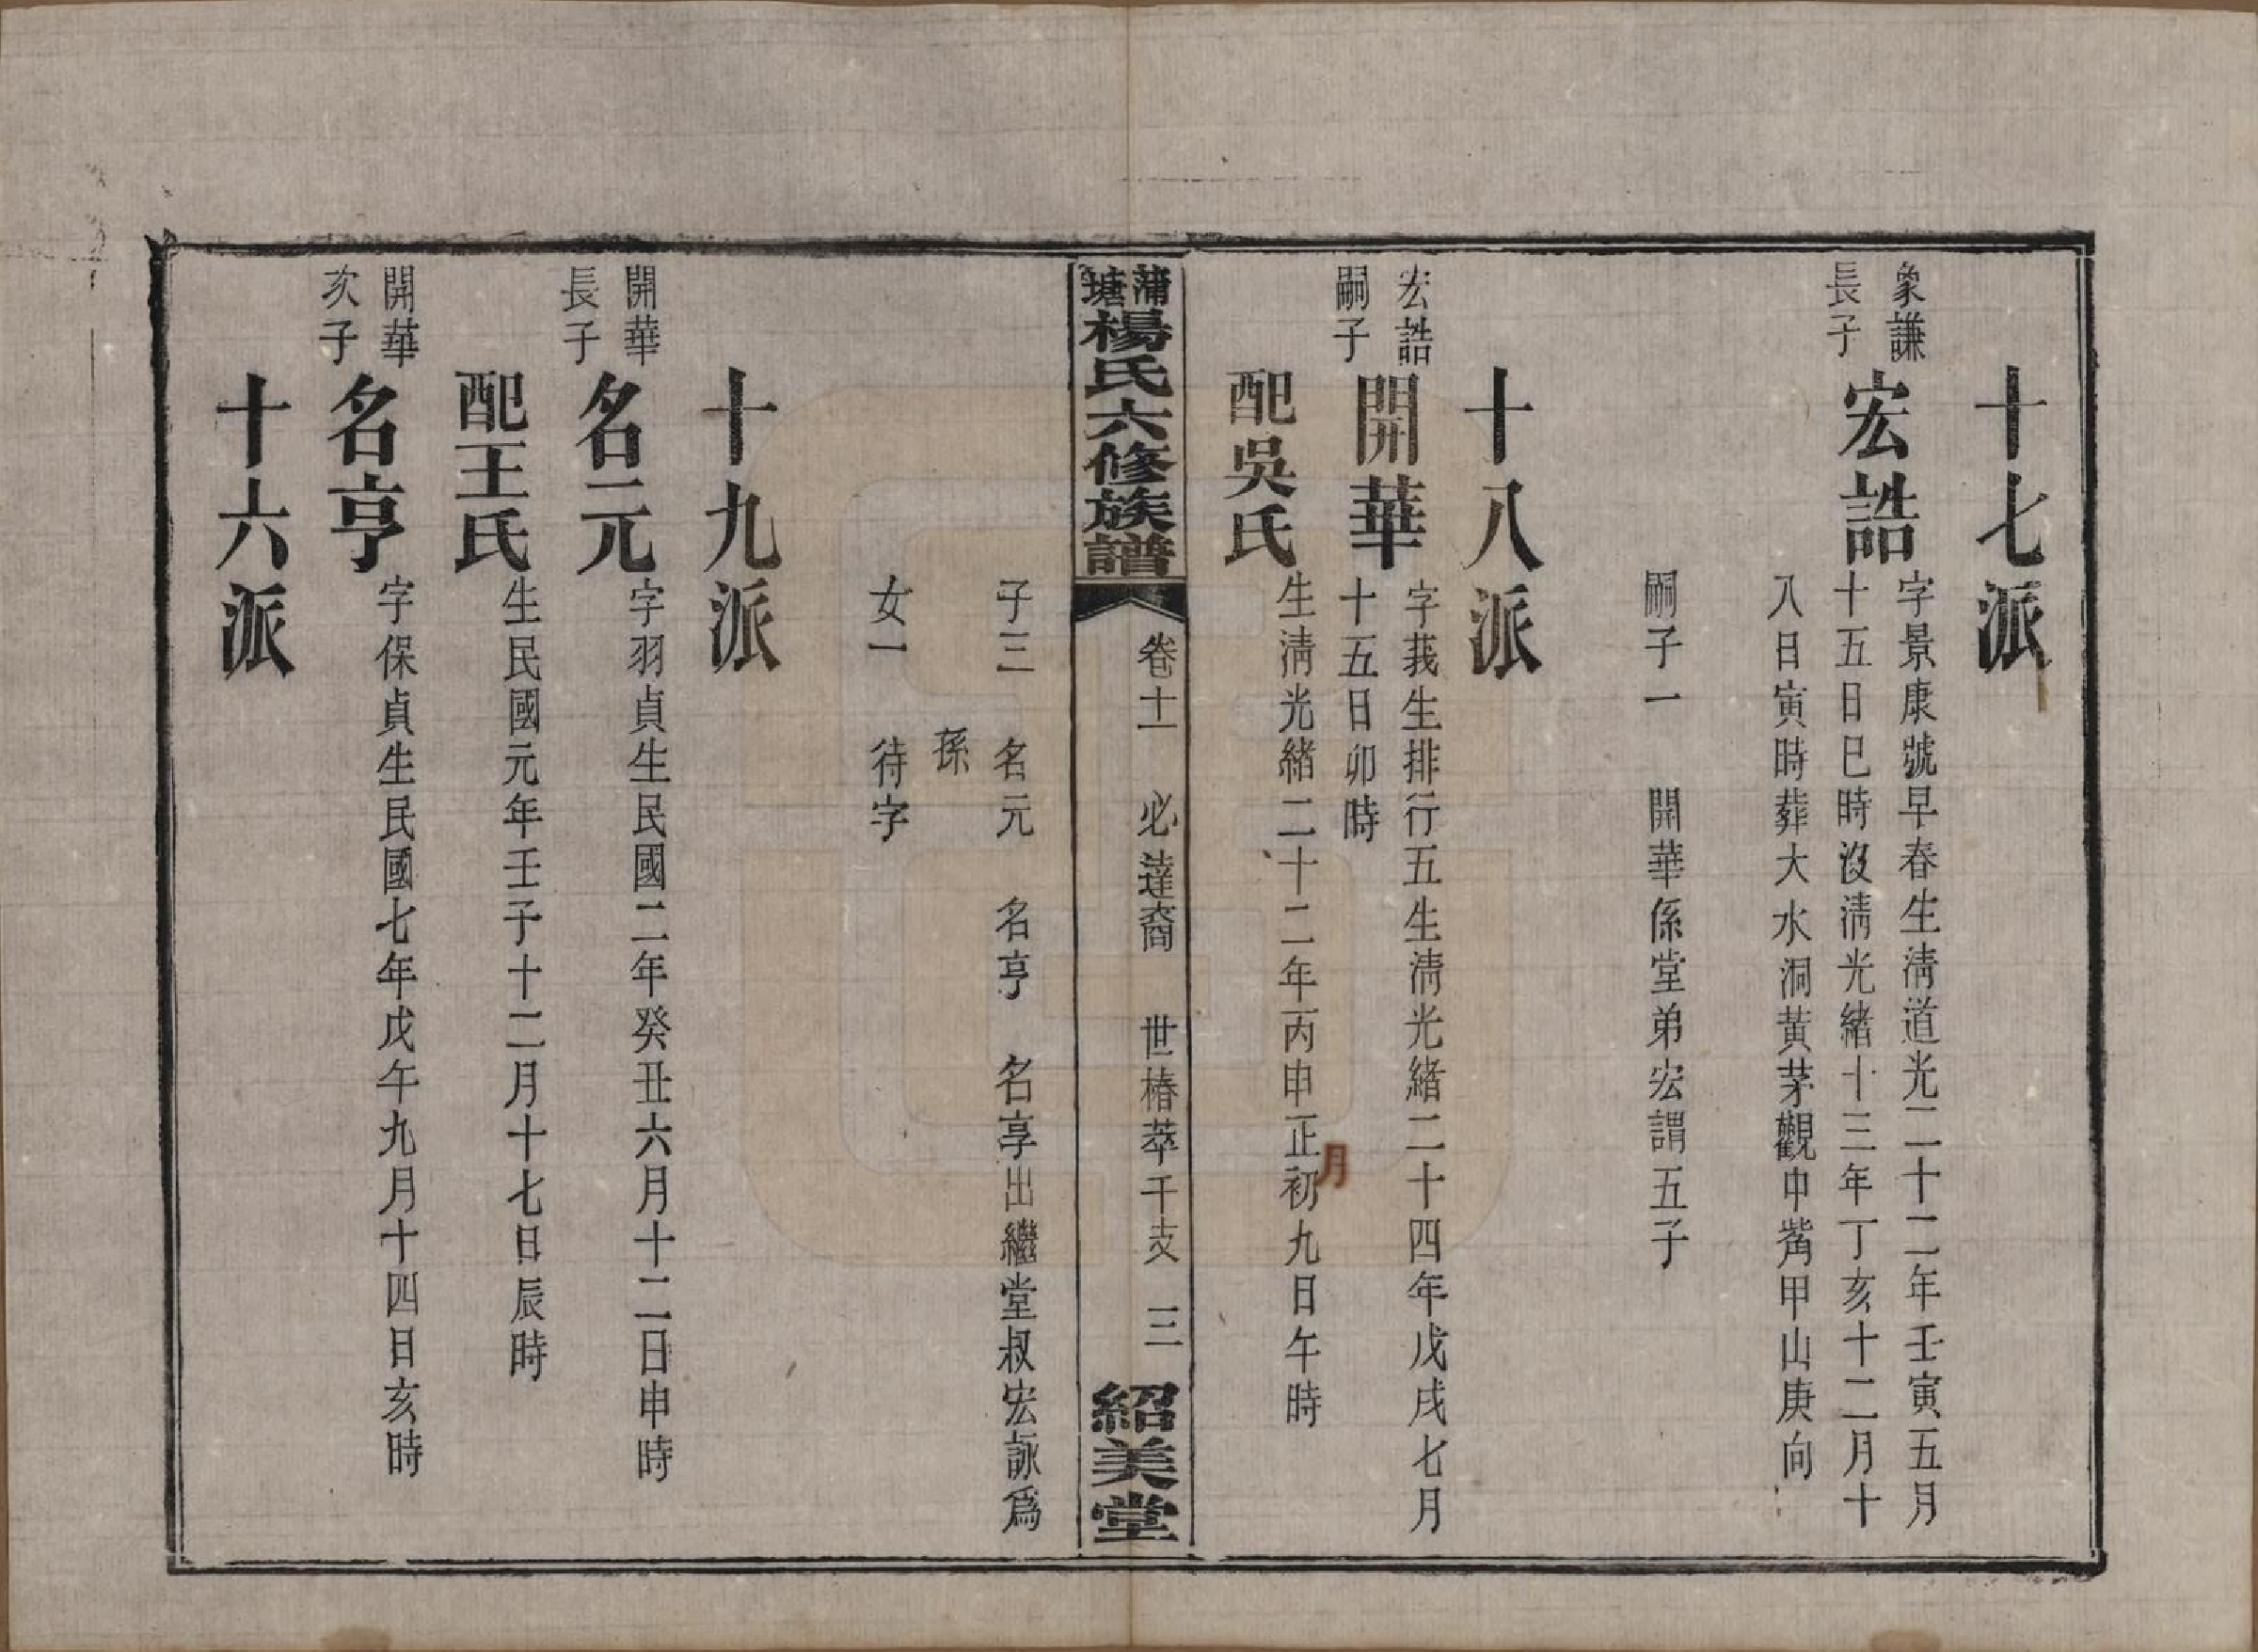 十七派
象謙
長子
宏誥
字景康號早春生淸道光二十二年壬寅五月
十五日巳時沒淸光緖十三年丁亥十二月十
八日寅時葬大水洞黃茅觀申觜甲山庚向
嗣子一 開華係堂弟宏謂五子
十八派
宏誥
嗣子
開華
字莪生排行五生淸光緖二十四年戊戌七月
十五日卯時
配吳氏
生淸光緖二十二年丙申正月初九日午時
蒲塘楊氏六修族譜
卷十一 必達裔 世椿萃千支 三
紹美堂
子三 名元 名亨 名享出繼堂叔宏詠爲
孫
女一 待字
十九派
開華
長子
名元
字羽貞生民國二年癸丑六月十二日申時
配王氏
生民國元年壬子十二月十七日辰時
開華
次子
名亨
字保貞生民國七年戊午九月十四日亥時
十六派